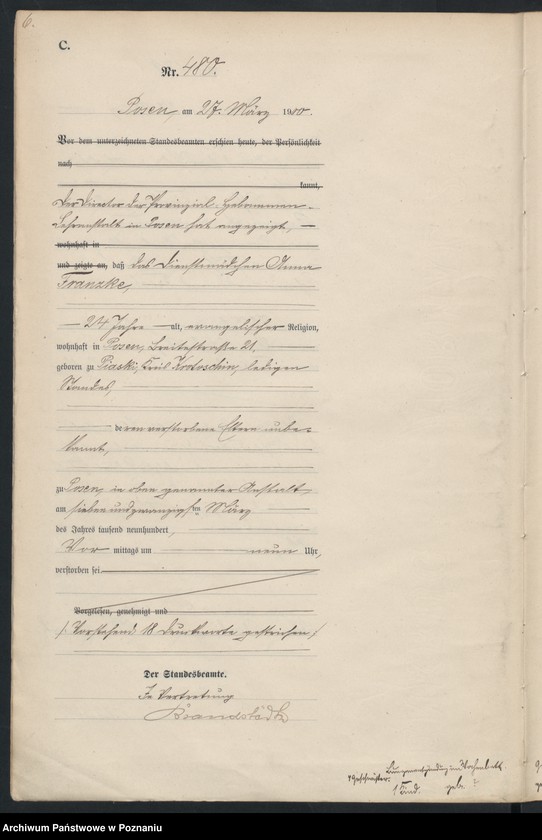 6.
C.
Nr. 480.
Posen, am 27. März 1900.
Vor dem unterzeichneten Standesbeamten erschien heute, der Persönlichkeit
nach
kannt,
Der Director der Provinzial-Hebammen-
Lehranstalt in Posen hat angezeigt,
wohnhaft in
und zeigte an, daß das Dienstmädchen Anna
Franzke,
24 Jahre alt, evangelischer Religion,
wohnhaft in Posen, Breitestraße 21.
geboren zu Piaski, Kreis Krotoschin, ledigen
Standes,
deren verstorbene Eltern unbe-
kannt,
zu Posen, in oben genannter Anstalt
am sieben und zwanzigsten März
des Jahres tausend neunhundert,
Vor mittags um neun Uhr,
verstorben sei.
Vorgelesen, genehmigt und
/ Vorstehend 18 Druckworte gestrichen /
Der Standesbeamte.
In Vertretung
Brandstädt
im Wochenbett
Geschwister.
1 Kind. geb. ?
Archiwum Państwowe w Poznaniu